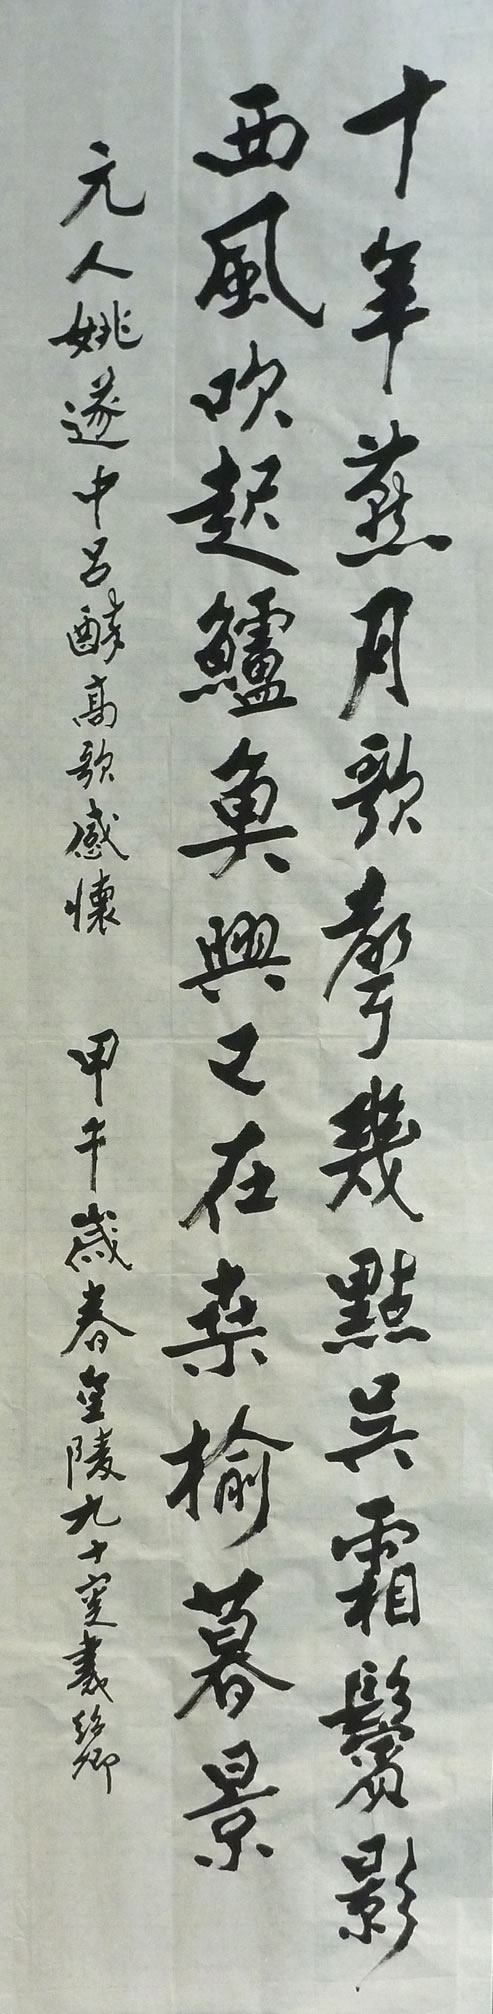 十年燕月歌聲幾點吳霜鬢影
西風吹起鱸魚興已在桑榆暮景
元人姚遂中呂醉高歌感懷 甲午歲春金陵九十叟義經卿